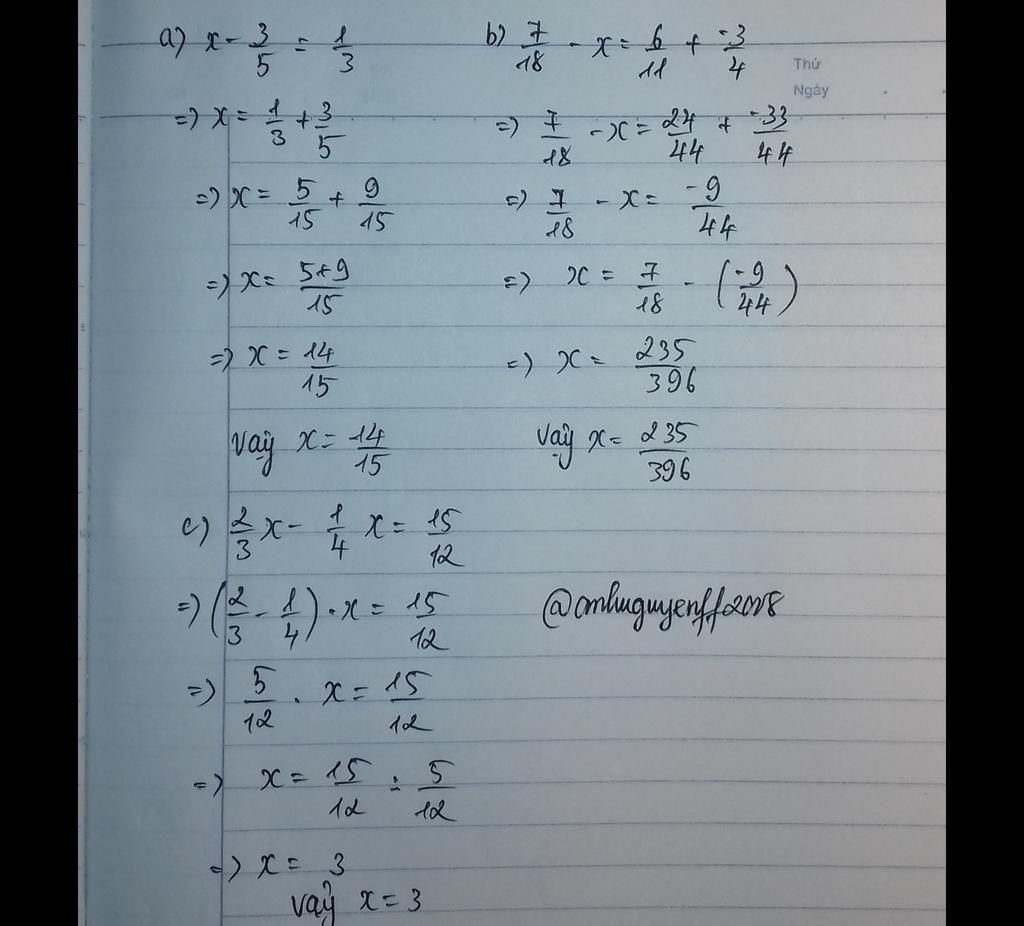 a) x - 3/5 = 1/3
=) x = 1/3 + 3/5
=) x = 5/15 + 9/15
=) x = 5+9/15
=) x = 14/15
vậy x = 14/15
b) 7/18 - x = 6/11 + -3/4
Thứ
Ngày
=) 7/18 - x = 24/44 + -33/44
=) 7/18 - x = -9/44
=) x = 7/18 - (-9/44)
=) x = 235/396
vậy x = 235/396
c) 2/3 x - 1/4 x = 15/12
=) (2/3 - 1/4) . x = 15/12
=) 5/12 . x = 15/12
=) x = 15/12 : 5/12
=) x = 3
vậy x = 3